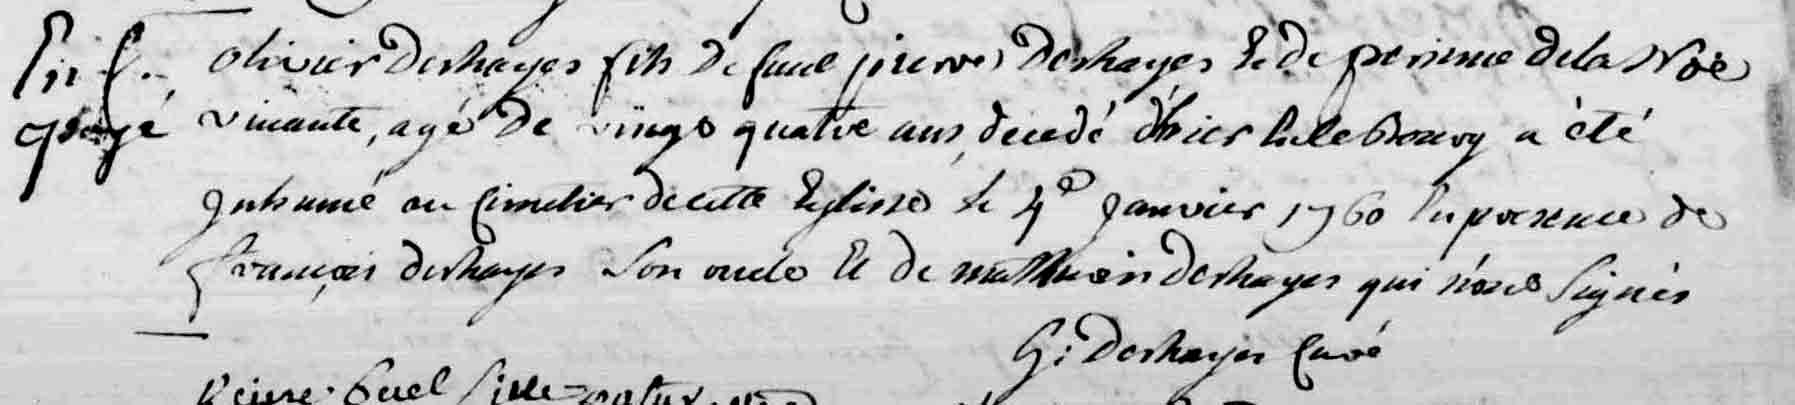 olivier Deshayes fils De feue pierres Deshayes Et de perinne de la Noë
vivante, agé De vingt quatre ans, decedé d'hier En le Bourg a été
Inhumé au Cimetier de cette Eglisse le 4e Janvier 1760 En presence de
françois deshayes Son oncle Et de mathurin Deshayes qui n'ons Signés
G: Deshayes Curé